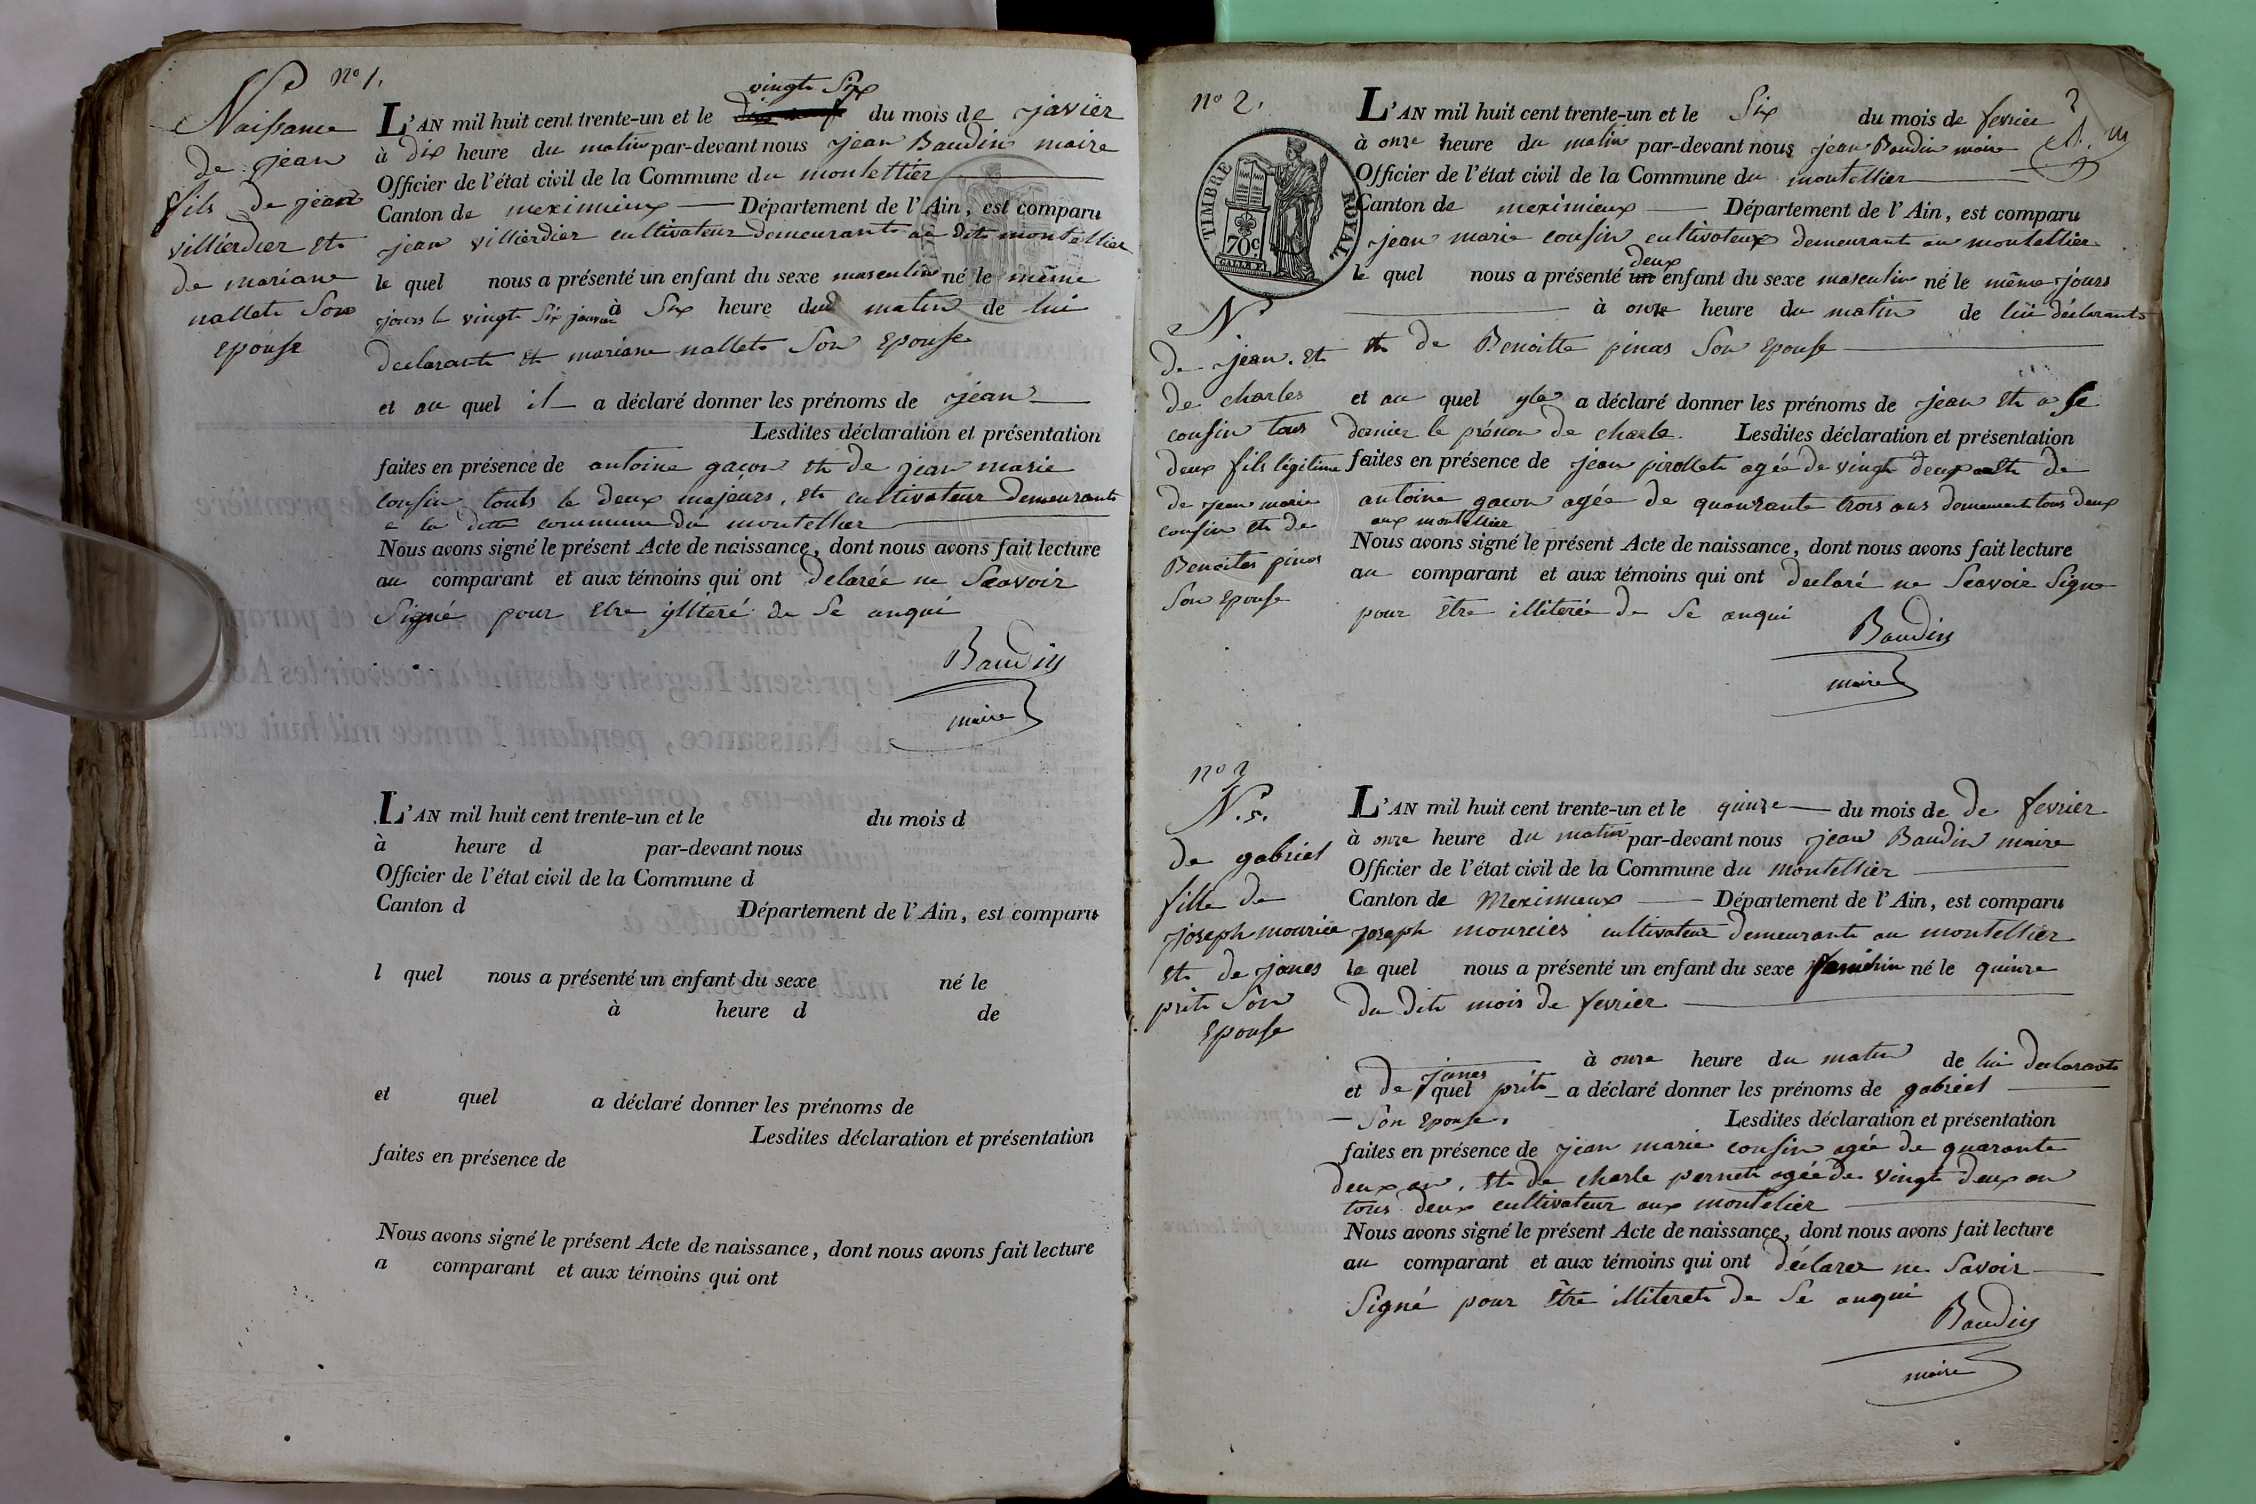 n° 1.
Naissance
de jean
fils de jean
villierdier et
de mariane
nallet Son
Epouse
vingt Six
L'AN mil huit cent trente-un et le du mois de javier
à dix heure du matin par-devant nous jean Baudin maire
Officier de l'état civil de la Commune du montellier
Canton de meximieux Département de l'Ain, est comparu
jean villierdier cultivateur demeurant au dit montellier
le quel nous a présenté un enfant du sexe masculin né le même
jours le vingt Six janvier à Six heure du matin de lui
declarant et mariane nallet Son Epouse
et au quel il a déclaré donner les prénoms de jean
Lesdites déclaration et présentation
faites en présence de antoine gacon et de jean marie
cousin touts le deux majeurs, et cultivateur demeurant
a la ditte commune du montellier
Nous avons signé le présent Acte de naissance, dont nous avons fait lecture
au comparant et aux témoins qui ont delarée ne Scavoir
Signé pour etre ylliteré de Se anqui
Baudin
maire
L'AN mil huit cent trente-un et le du mois d
à heure d par-devant nous
Officier de l'état civil de la Commune d
Canton d Département de l'Ain, est comparu
l quel nous a présenté un enfant du sexe né le
à heure d de
et quel a déclaré donner les prénoms de
Lesdites déclaration et présentation
faites en présence de
Nous avons signé le présent Acte de naissance, dont nous avons fait lecture
a comparant et aux témoins qui ont
n° 2.
TIMBRE ROYAL.
70c.
N.
de jean. et
de charles
cousin tous
deux fils légitime
de jean marie
cousin et de
Benoites pinas
Son Epouse
2
L'AN mil huit cent trente-un et le Six du mois de fevrier
à onze heure du matin par-devant nous jean Baudin maire
Officier de l'état civil de la Commune du montellier
Canton de meximieux Département de l'Ain, est comparu
jean marie cousin cultivateux demeurant au montellier
deux
le quel nous a présenté un enfant du sexe masculin né le même jours
à onze heure du matin de lui déclarants
et de Benoitte pinas Son Epouse
et au quel yla a déclaré donner les prénoms de jean et a se
dernier le prénom de charle. Lesdites déclaration et présentation
faites en présence de jean pirollet agée de vingt deux et de
antoine gacon agée de quaurante trois ans demeurant tous deux
aux montellier
Nous avons signé le présent Acte de naissance, dont nous avons fait lecture
au comparant et aux témoins qui ont declaré ne Scavoir Signe
pour être illiterée de Se anqui
Baudin
maire
n° 2
N. s.
de gabriel
fille de
joseph mourice
et de janes
prite Son
Epouse
L'AN mil huit cent trente-un et le quinze du mois de de fevrier
à onze heure du matin par-devant nous jean Baudin maire
Officier de l'état civil de la Commune du montellier
Canton de Meximieux Département de l'Ain, est comparu
joseph mourciés cultivateur demeurant au montellier
le quel nous a présenté un enfant du sexe né le quinze
du dit mois de fevrier
à onze heure du matin de lui declarants
et de janes quel prite a déclaré donner les prénoms de gabriel
Son Epouse. Lesdites déclaration et présentation
faites en présence de jean marie cousin agée de quarante
deux an, et de charle pernet agée de vingt deux an
tous deux cultivateur aux montelier
Nous avons signé le présent Acte de naissance, dont nous avons fait lecture
au comparant et aux témoins qui ont déclarer ne Savoir
Signé pour être illiteret de Se anqui
Baudin
maire